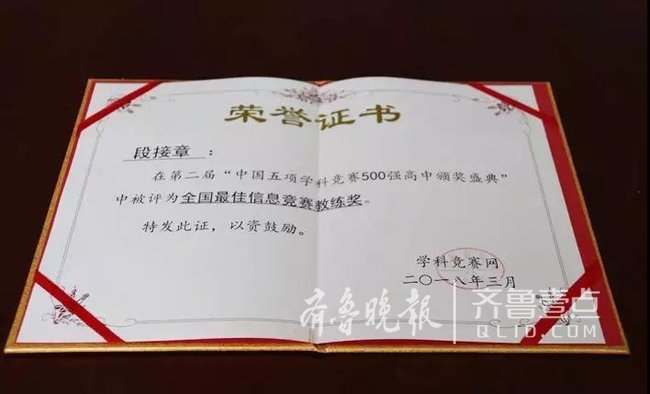 荣誉证书
段接章：
在第二届“中国五项学科竞赛500强高中颁奖盛典”
中被评为全国最佳信息竞赛教练奖。
特发此证，以资鼓励。
学科竞赛网
二〇一八年三月
齐鲁晚报 齐鲁壹点
QLID.COM